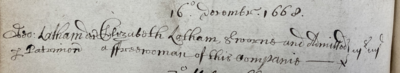 16° Decemb: 1668.
Latham Elizabeth Latham, sworne and Admitted
p Patrimon a ffreewoman of this Companie